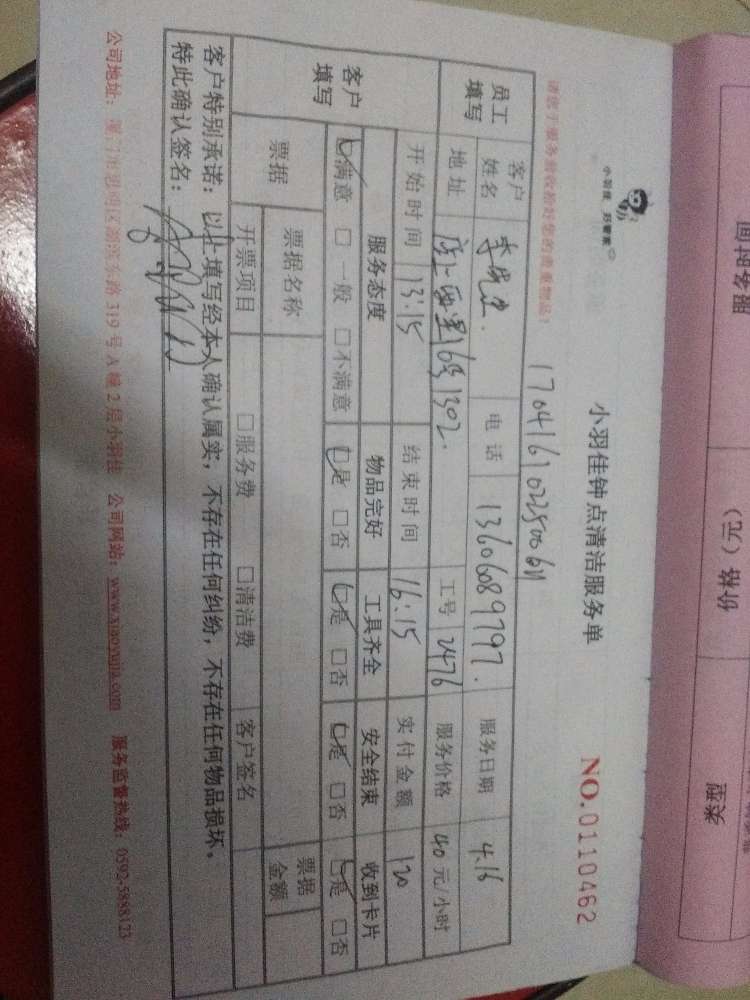 服务时间
价格（元）
类型
小羽佳 好管家
小羽佳钟点清洁服务单
NO.0110462
170416102250061
员工填写
客户姓名
电话 13606089797.
服务日期 4.16
地址 16号1302.
工号 2476
服务价格 40元/小时
开始时间 13:15
结束时间 16:15
实付金额 120
客户填写
服务态度 物品完好 工具齐全 安全结束 收到卡片
☑满意 □一般 □不满意 ☑是 □否 ☑是 □否 ☑是 □否 ☑是 □否
票据 票据名称 票据金额
开票项目 □服务费 □清洁费 客户签名
客户特别承诺：以上填写经本人确认属实，不存在任何纠纷，不存在任何物品损坏。
特此确认签名：
公司地址：厦门市思明区湖滨东路319号A幢2层小羽佳 公司网站：www.xiaoyujia.com 服务监督热线：0592-5888123